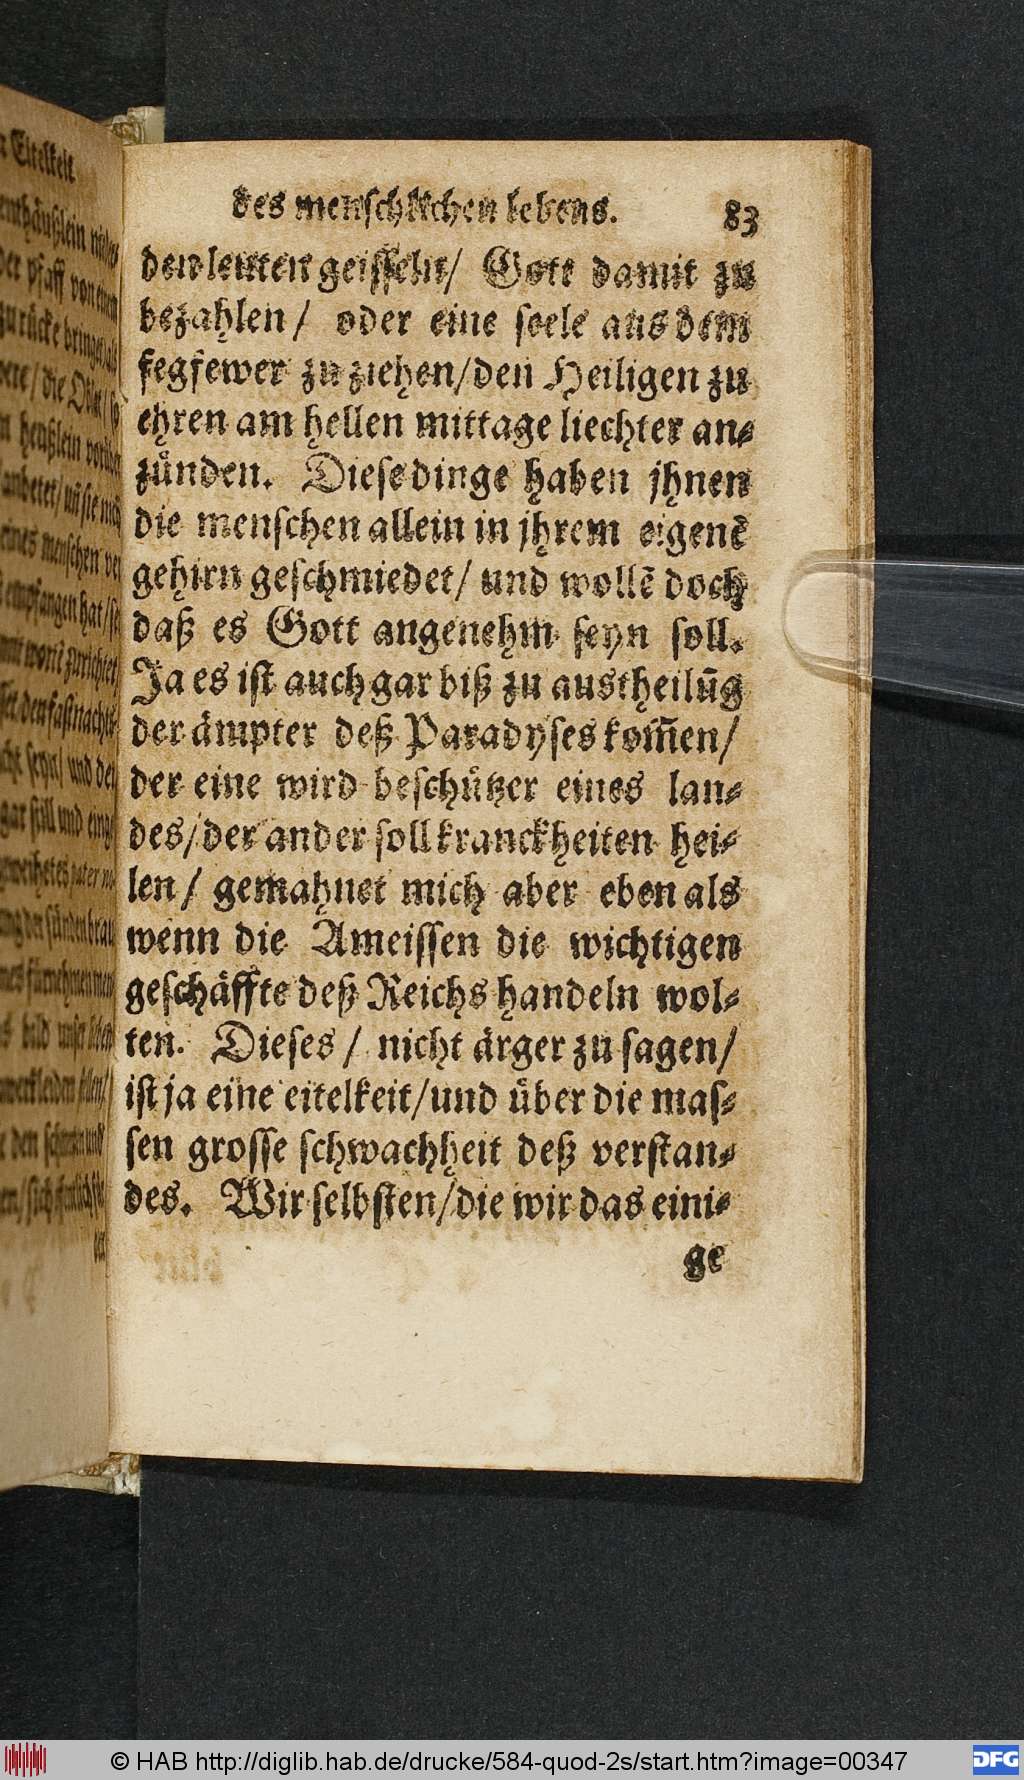 des menschlichen lebens. 83
den leuten geisseln/ Gott damit zu
bezahlen/ oder eine seele aus dem
fegfewer zu ziehen/den Heiligen zu
ehren am hellen mittage liechter an-
zuͤnden. Diese dinge haben jhnen
die menschen allein in jhrem eigenẽ
gehirn geschmiedet/ und wollẽ doch
daß es Gott angenehm seyn soll.
Ja es ist auch gar biß zu austheilũg
der aͤmpter deß Paradyses kom̃en/
der eine wird beschuͤtzer eines lan-
des/der ander soll kranckheiten hei-
len/ gemahnet mich aber eben als
wenn die Ameissen die wichtigen
geschaͤffte deß Reichs handeln wol-
ten. Dieses/ nicht aͤrger zu sagen/
ist ja eine eitelkeit/und uͤber die mas-
sen grosse schwachheit deß verstan-
des. Wir selbsten/die wir das eini-
ge
© HAB http://diglib.hab.de/drucke/584-quod-2s/start.htm?image=00347
DFG